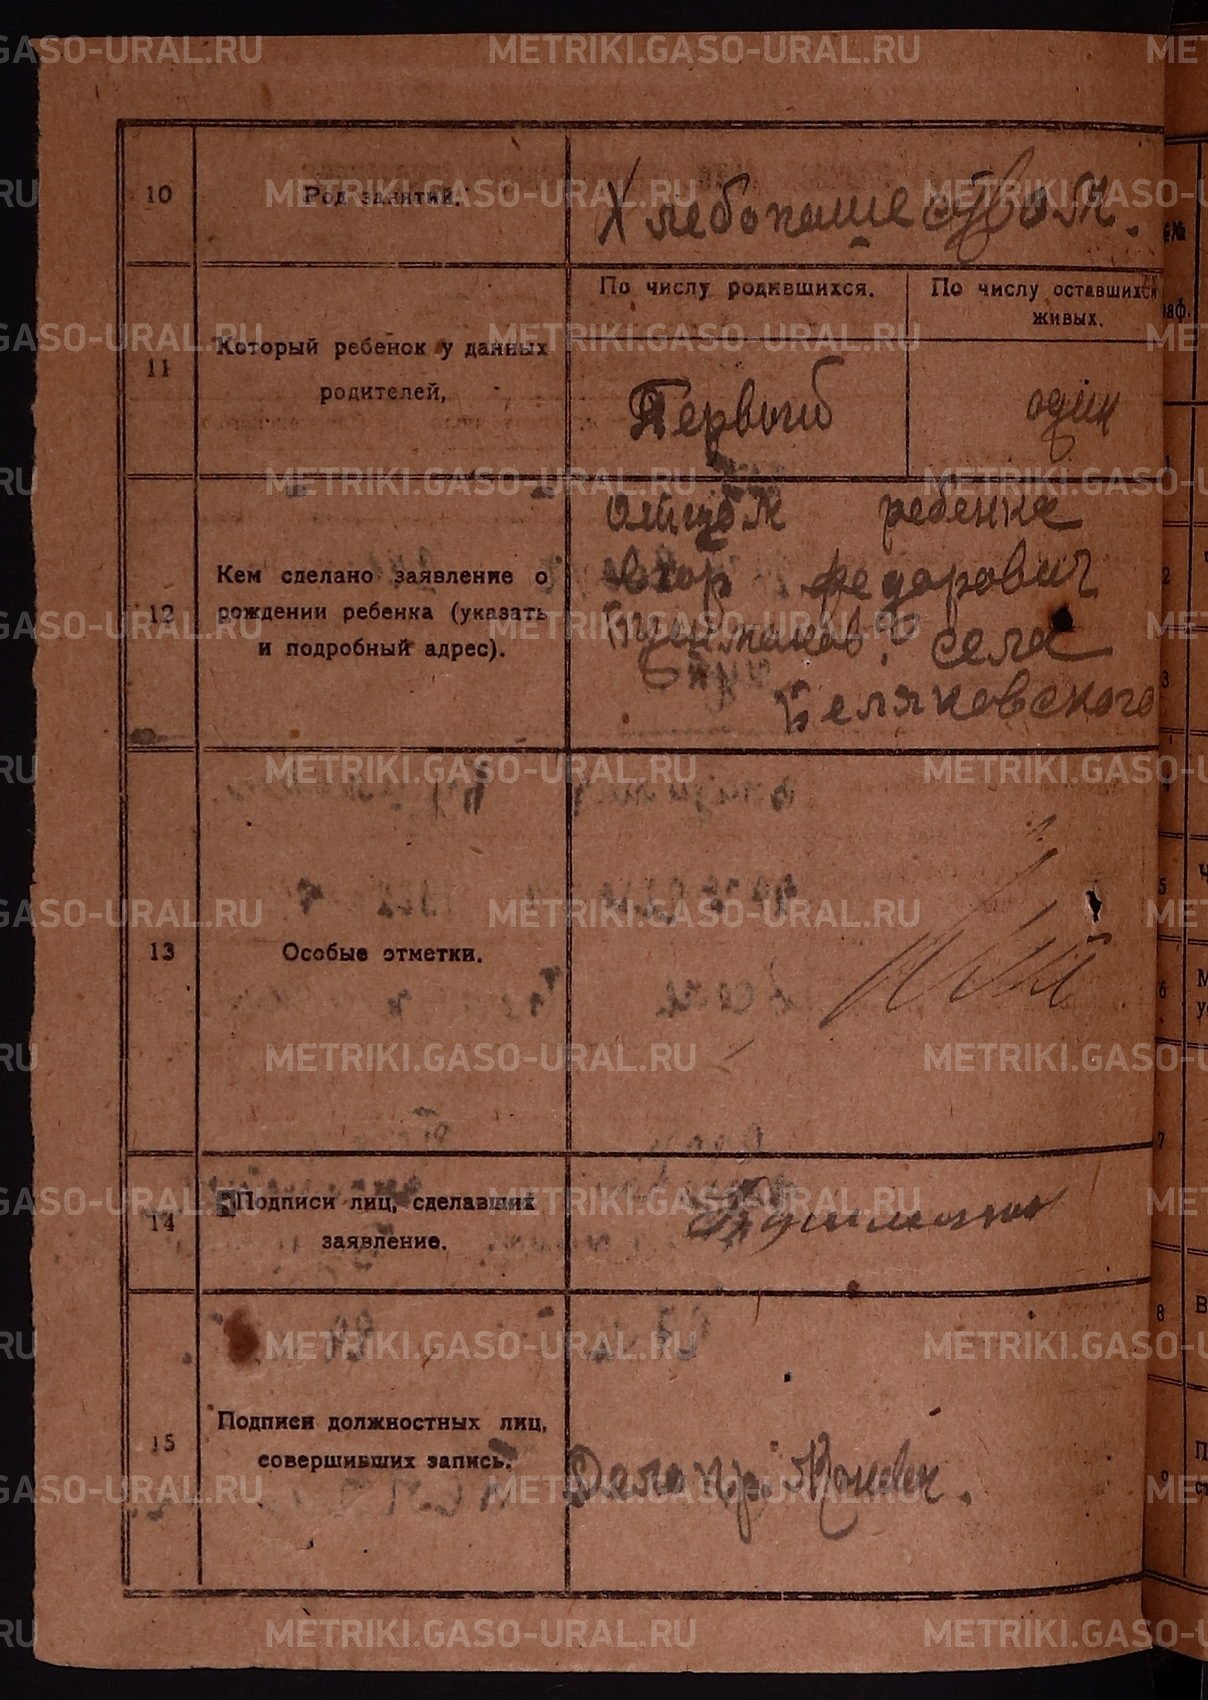 METRIKI.GASO-URAL.RU
10
Род занятий.
Хлебопашеством.
11
Который ребенок у данных
родителей,
По числу родившихся.
По числу оставшихся
живых.
Первый
один
12
Кем сделано заявление о
рождении ребенка (указать
и подробный адрес).
ребенка
Федорович
села
Беляковского
13
Особые отметки.
14
Подписи лиц, сделавших
заявление.
15
Подписи должностных лиц,
совершивших запись.
Делопр.